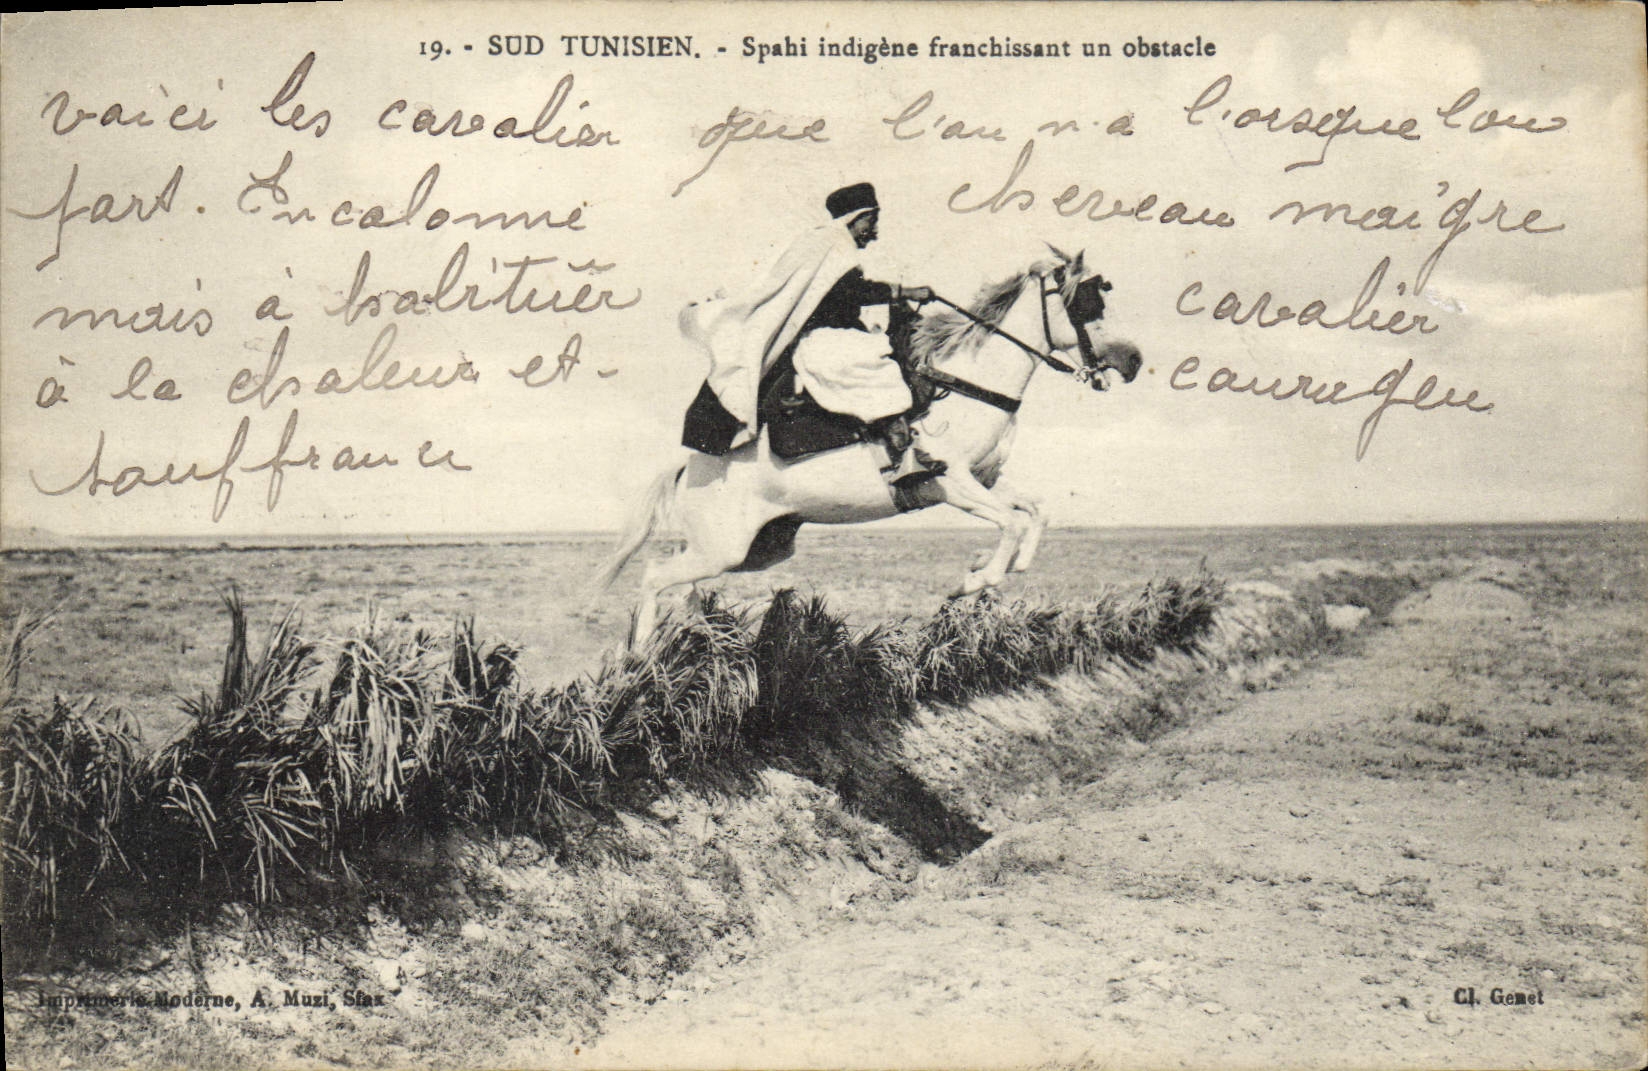 19. - SUD TUNISIEN. - Spahi indigène franchissant un obstacle
voici les cavalier que l'on n.a l'orsque lon
part. En colonne cheveau maigre
mais à habituer cavalier
à la chaleur et - courageu
souffrance
Imprimerie Moderne, A. Muzi, Sfax
Cl. Genet